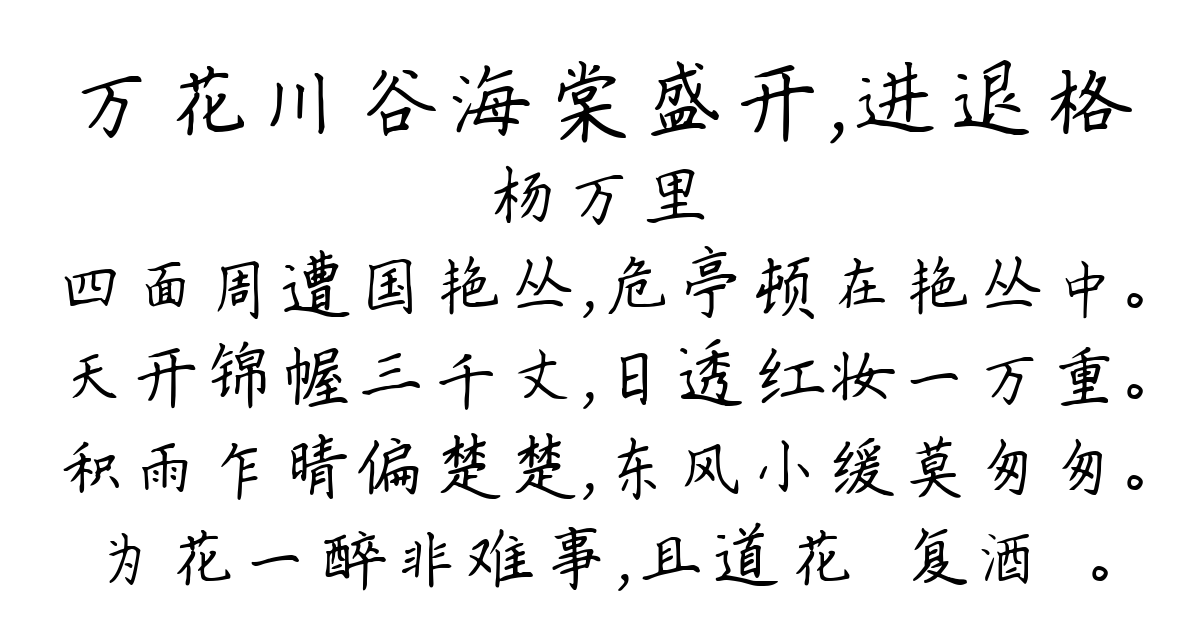 万花川谷海棠盛开,进退格
杨万里
四面周遭国艳丛,危亭顿在艳丛中。
天开锦幄三千丈,日透红妆一万重。
积雨乍晴偏楚楚,东风小缓莫匆匆。
为花一醉非难事,且道花 复酒 。